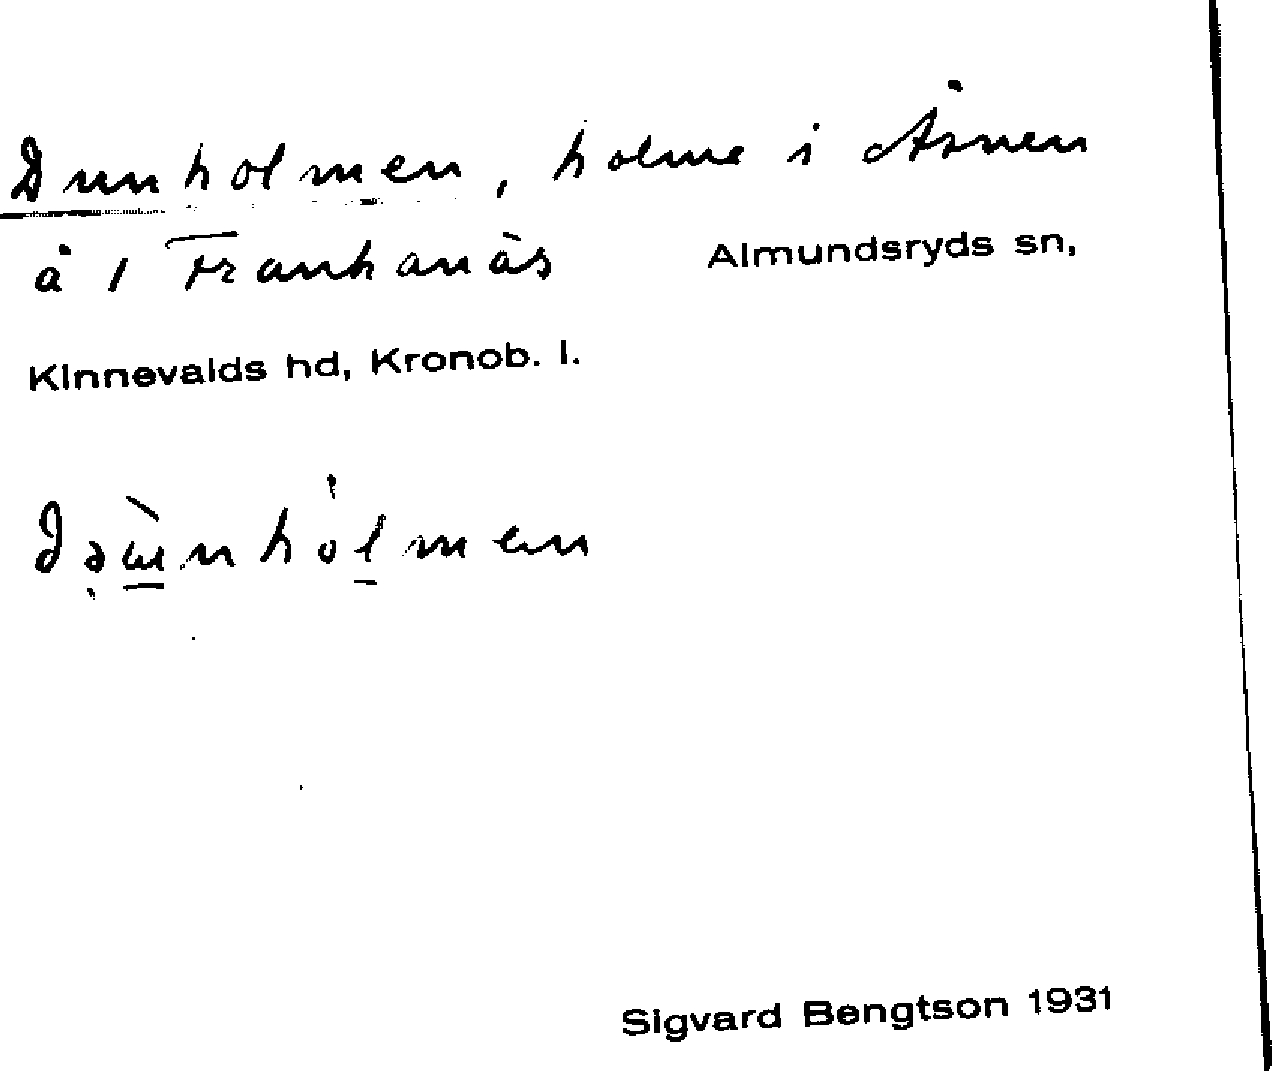 Dunholmen, holme i Åsnen
å 1 Franhanäs Almundsryds sn,
Kinnevalds hd, Kronob. l.
Sigvard Bengtson 1931